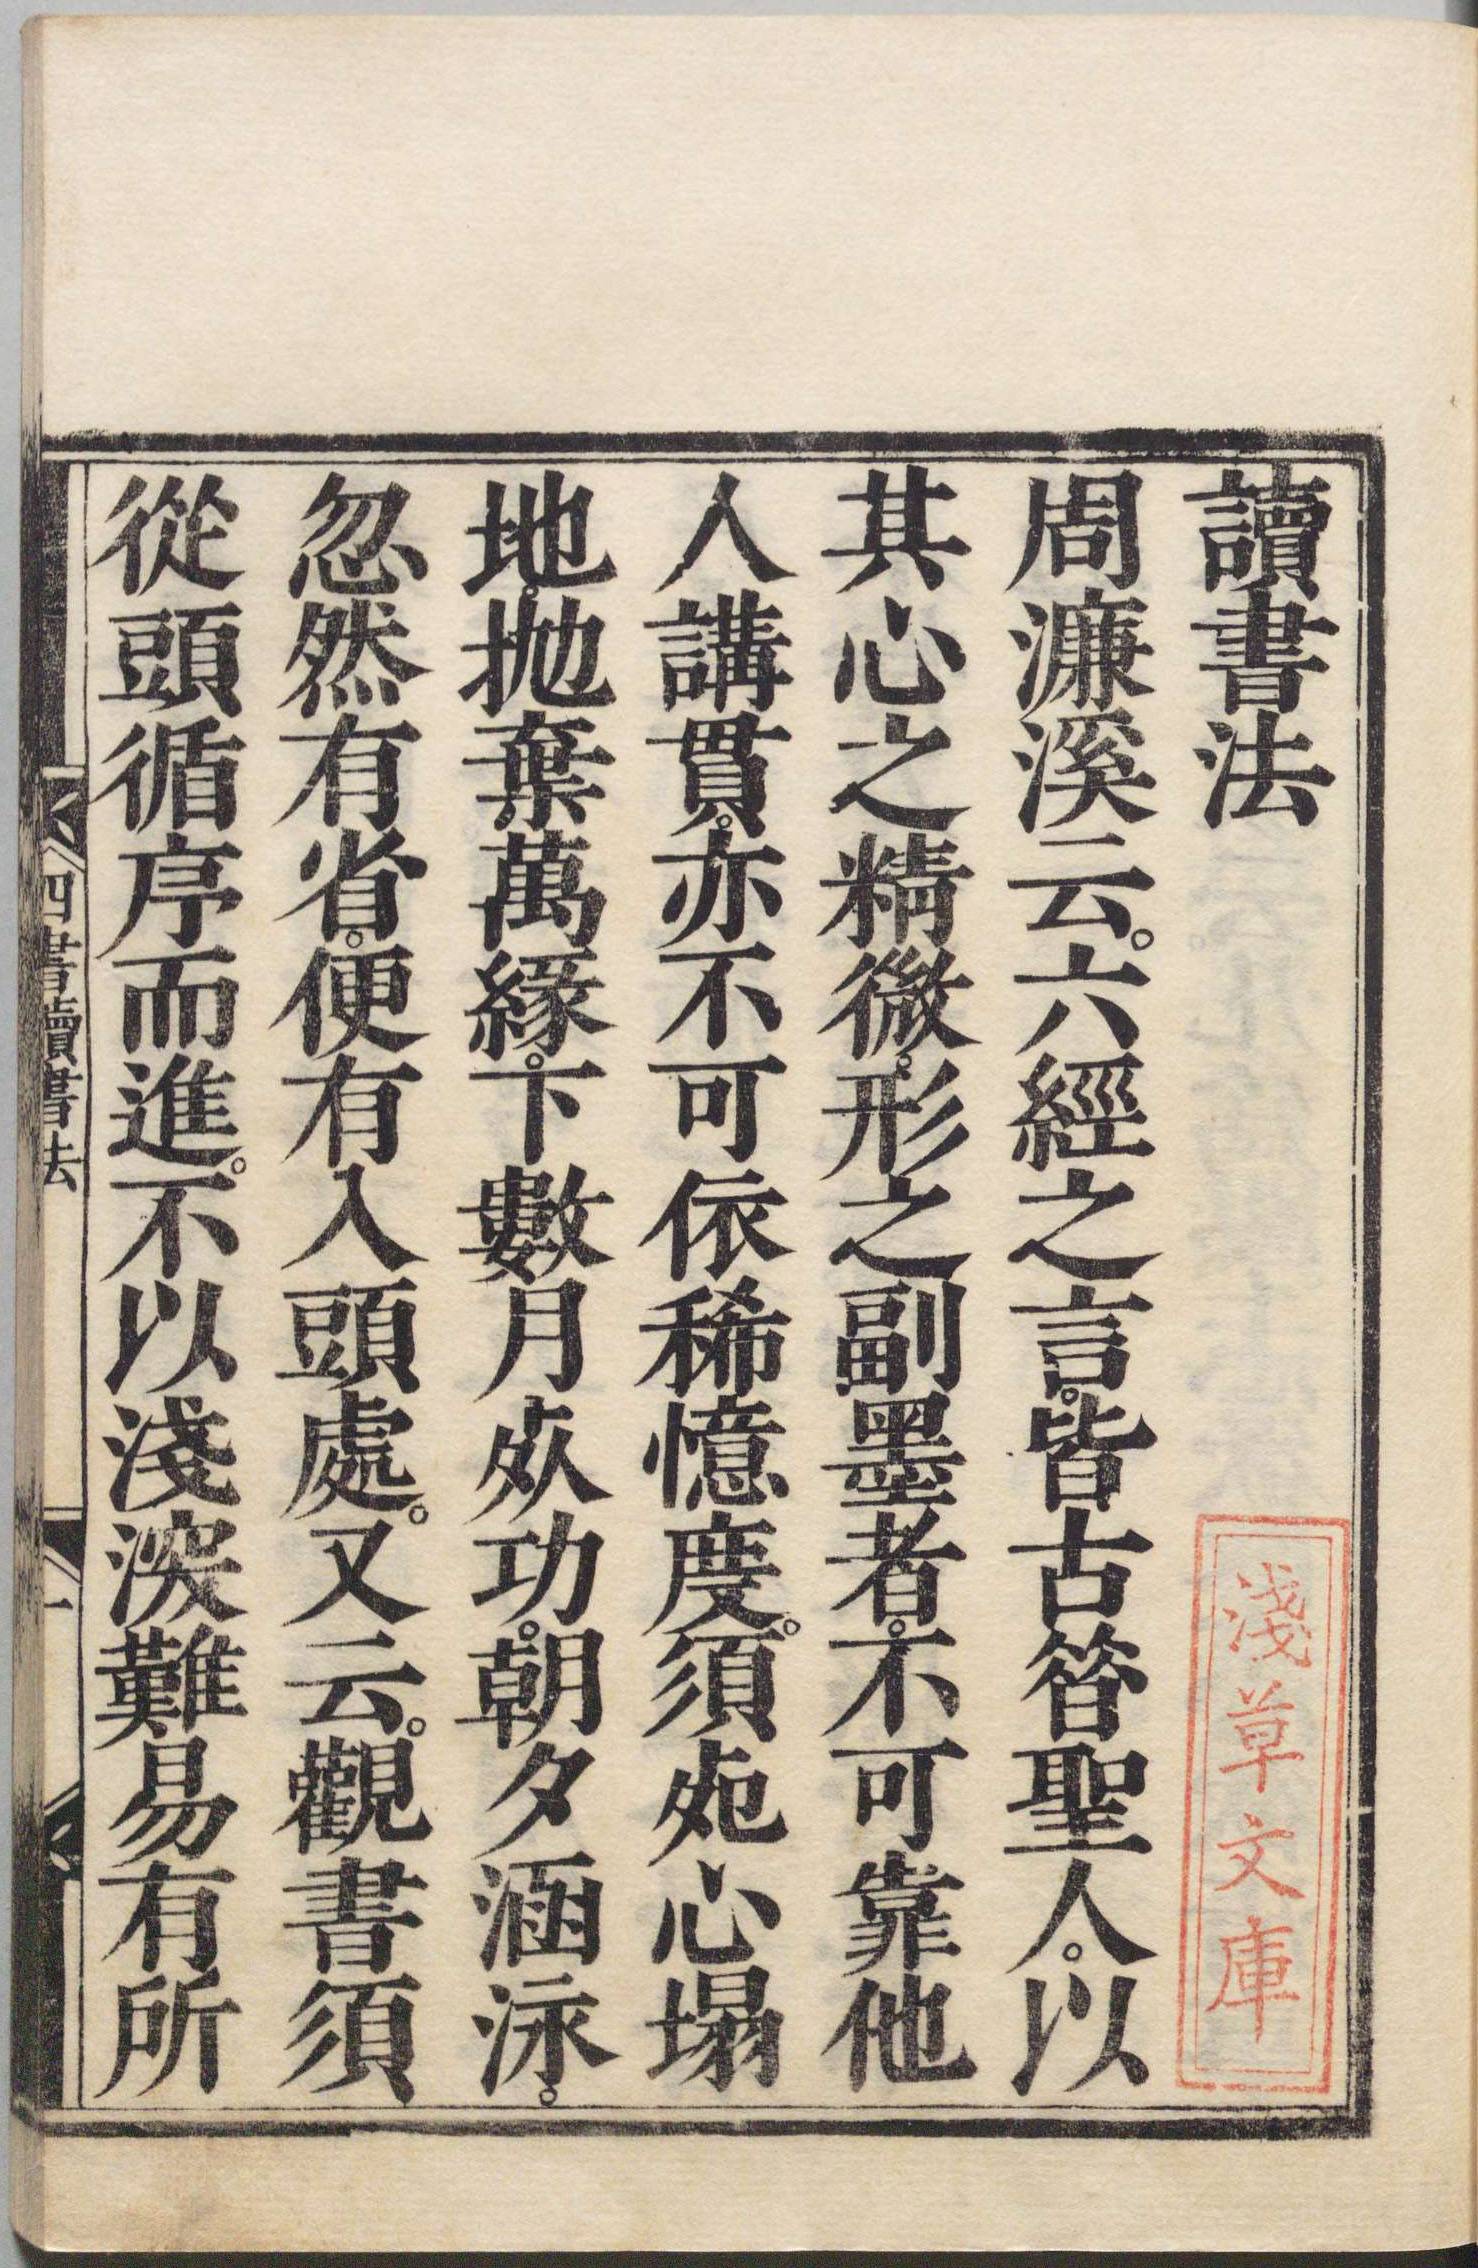 讀書法
周濂溪云。六經之言。皆古昝聖人。以
其心之精微。形之副墨者。不可靠他
人講貫。亦不可依稀憶度。須𡖖心塌
地。抛棄萬緣。下數月𡖖功。朝夕涵泳。
忽然有省。便有入頭處。又云。觀書須
從頭循序而進。不以淺深難易有所
四書讀書法
一
淺草文庫